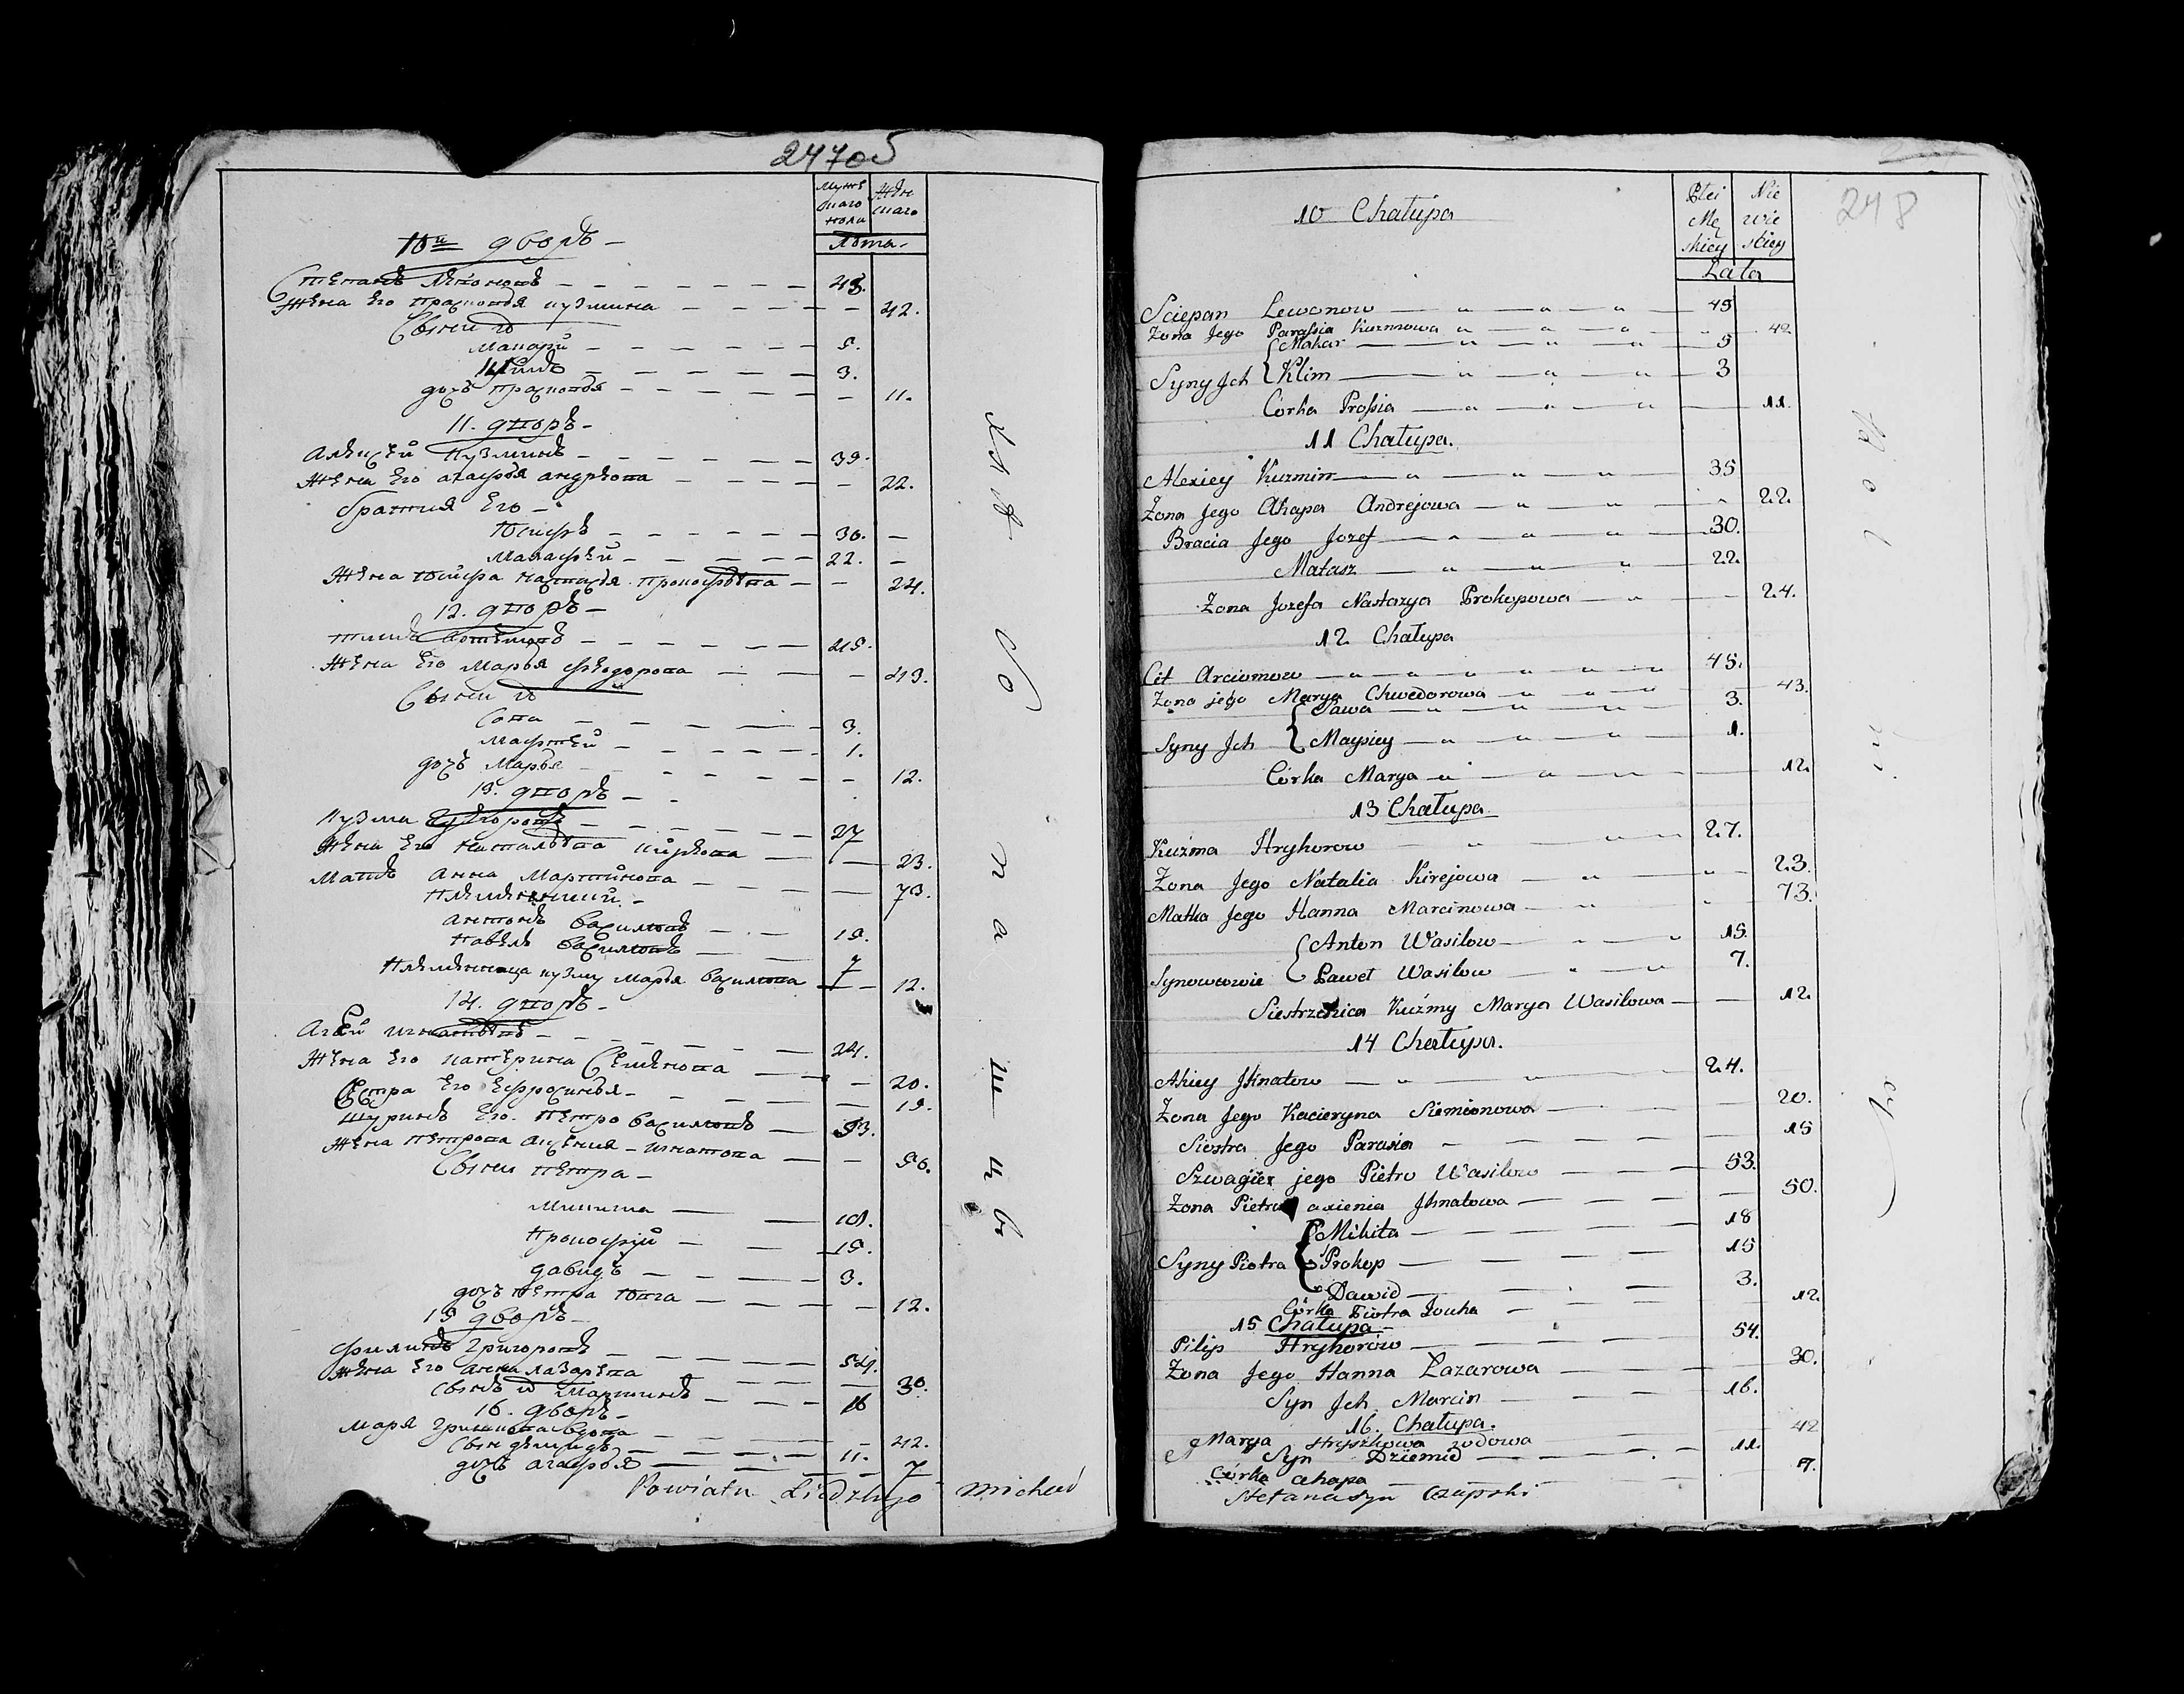 247об
Мужескаго пола
Женскаго
Лѣта
10й дворъ
Степанъ Леоновъ 45.
Жена Его Прасковья Кузмина 42.
Сыни ихъ
Макарй 5.
Климъ 3.
дочь Прасковья 11.
11. дворъ
Алексѣй Кузминъ 35.
Жена Его Агафья Андрѣева 22.
братия Его
Юсифъ 30.
Малафѣй 22.
Жена Юсифа Настасья Прокофьева 24.
12. дворъ
Титъ Артемовъ 45.
Жена Его Марья Федорова 43.
Сыни ихъ
Сава 3.
Матфей 1.
дочь Марья 12.
13. дворъ
Кузма Григоровъ 27
Жена Его Наталья Кирѣева 23.
Матъ Анна Мартинова 73.
Племянники
Антонъ Василювъ 15.
Павелъ Василювъ 7
Племянница Кузмы Марья Василюва 12.
14. дворъ
Агѣй Игнатьевъ 24.
Жена Его Катерина Семенова 20.
Сестра Его Ефросинья 15.
Шуринъ Его Петро Василювъ 53.
Жена Петрова Аксения Игнатова 50.
Сыни Петра
Микита 18.
Прокофій 15.
Давидъ 3.
дочь Петра Ювга 12.
15 дворъ
Филипъ Григоровъ 54.
Жена Его Анна Лазарева 30.
Сынъ их Мартинъ 16
16. дворъ
Маря Гришкова вдова 42.
Сын Демидъ 11.
дочь Агафья 7
Powiatu Lidzkiego michał
248
Płci Męskiey
Niewieściey
Lata
10 Chałupa
Sciepan Lewonow 45
Zona Jego Parassia Kuzmowa 42
Makar 5
Syny Jch Klim 3
Córka Prossia 11.
11 Chałupa.
Alexiey Kuzmin 35
Zona Jego Ahapa Andrejowa 22.
Bracia Jego Jozef 30.
Małasz 22.
Zona Jozefa Nastazya Prokopowa 24.
12 Chałupa
Cit Arciomow 45.
Zona jego Marya Chwedorowa 43.
Sawa 3.
Syny Jch Maysiey 1.
Córka Marya 12.
13 Chałupa
Kuźma Hryhorow 27.
Zona Jego Natalia Kirejowa 23.
Matka Jego Hanna Marcinowa 73.
Anton Wasilow 15.
Synowcowie Paweł Wasilow 7.
Siestrzenica Kuźmy Marya Wasilowa 12.
14 Chałupa.
Ahiey Jhnatow 24.
Zona Jego Kacieryna Siemionowa 20.
Siostra Jego Parasia 15
Szwagier jego Pietro Wasilow 53.
Zona Pietra axienia Jhnatowa 50.
Mikita 18
Syny Piotra Prokop 15
Dawid 3.
Córka Piotra Jouha 12.
15 Chałupa
Pilip Hryhorow 54.
Zona Jego Hanna Łazarowa 30.
Syn Jch Marcin 16.
16. Chałupa.
Marya Hryszkowa wdowa 42
Syn Dziemid 11.
Córka ahapa 7.
Stefana syn Czapski